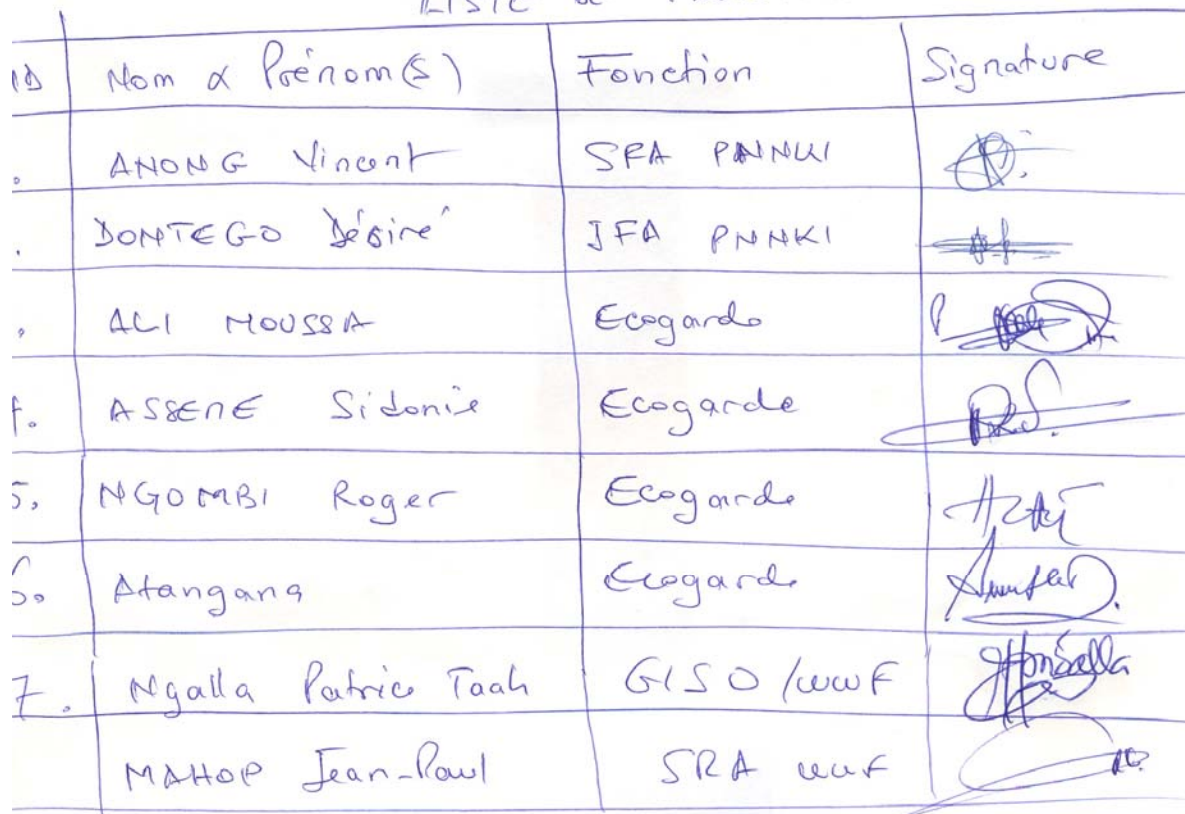 LISTE de
ID Nom & Prénom(s) Fonction Signature
. ANONG Vincent SFA PNNKI
. DONTEGO Désiré JFA PNNKI
. ALI MOUSSA Ecogarde
4. ASSENE Sidonie Ecogarde
5. NGOMBI Roger Ecogarde
6. Atangana Ecogarde
7. Ngalla Patrice Taah GISO/WWF
MAHOP Jean-Paul SRA WWF